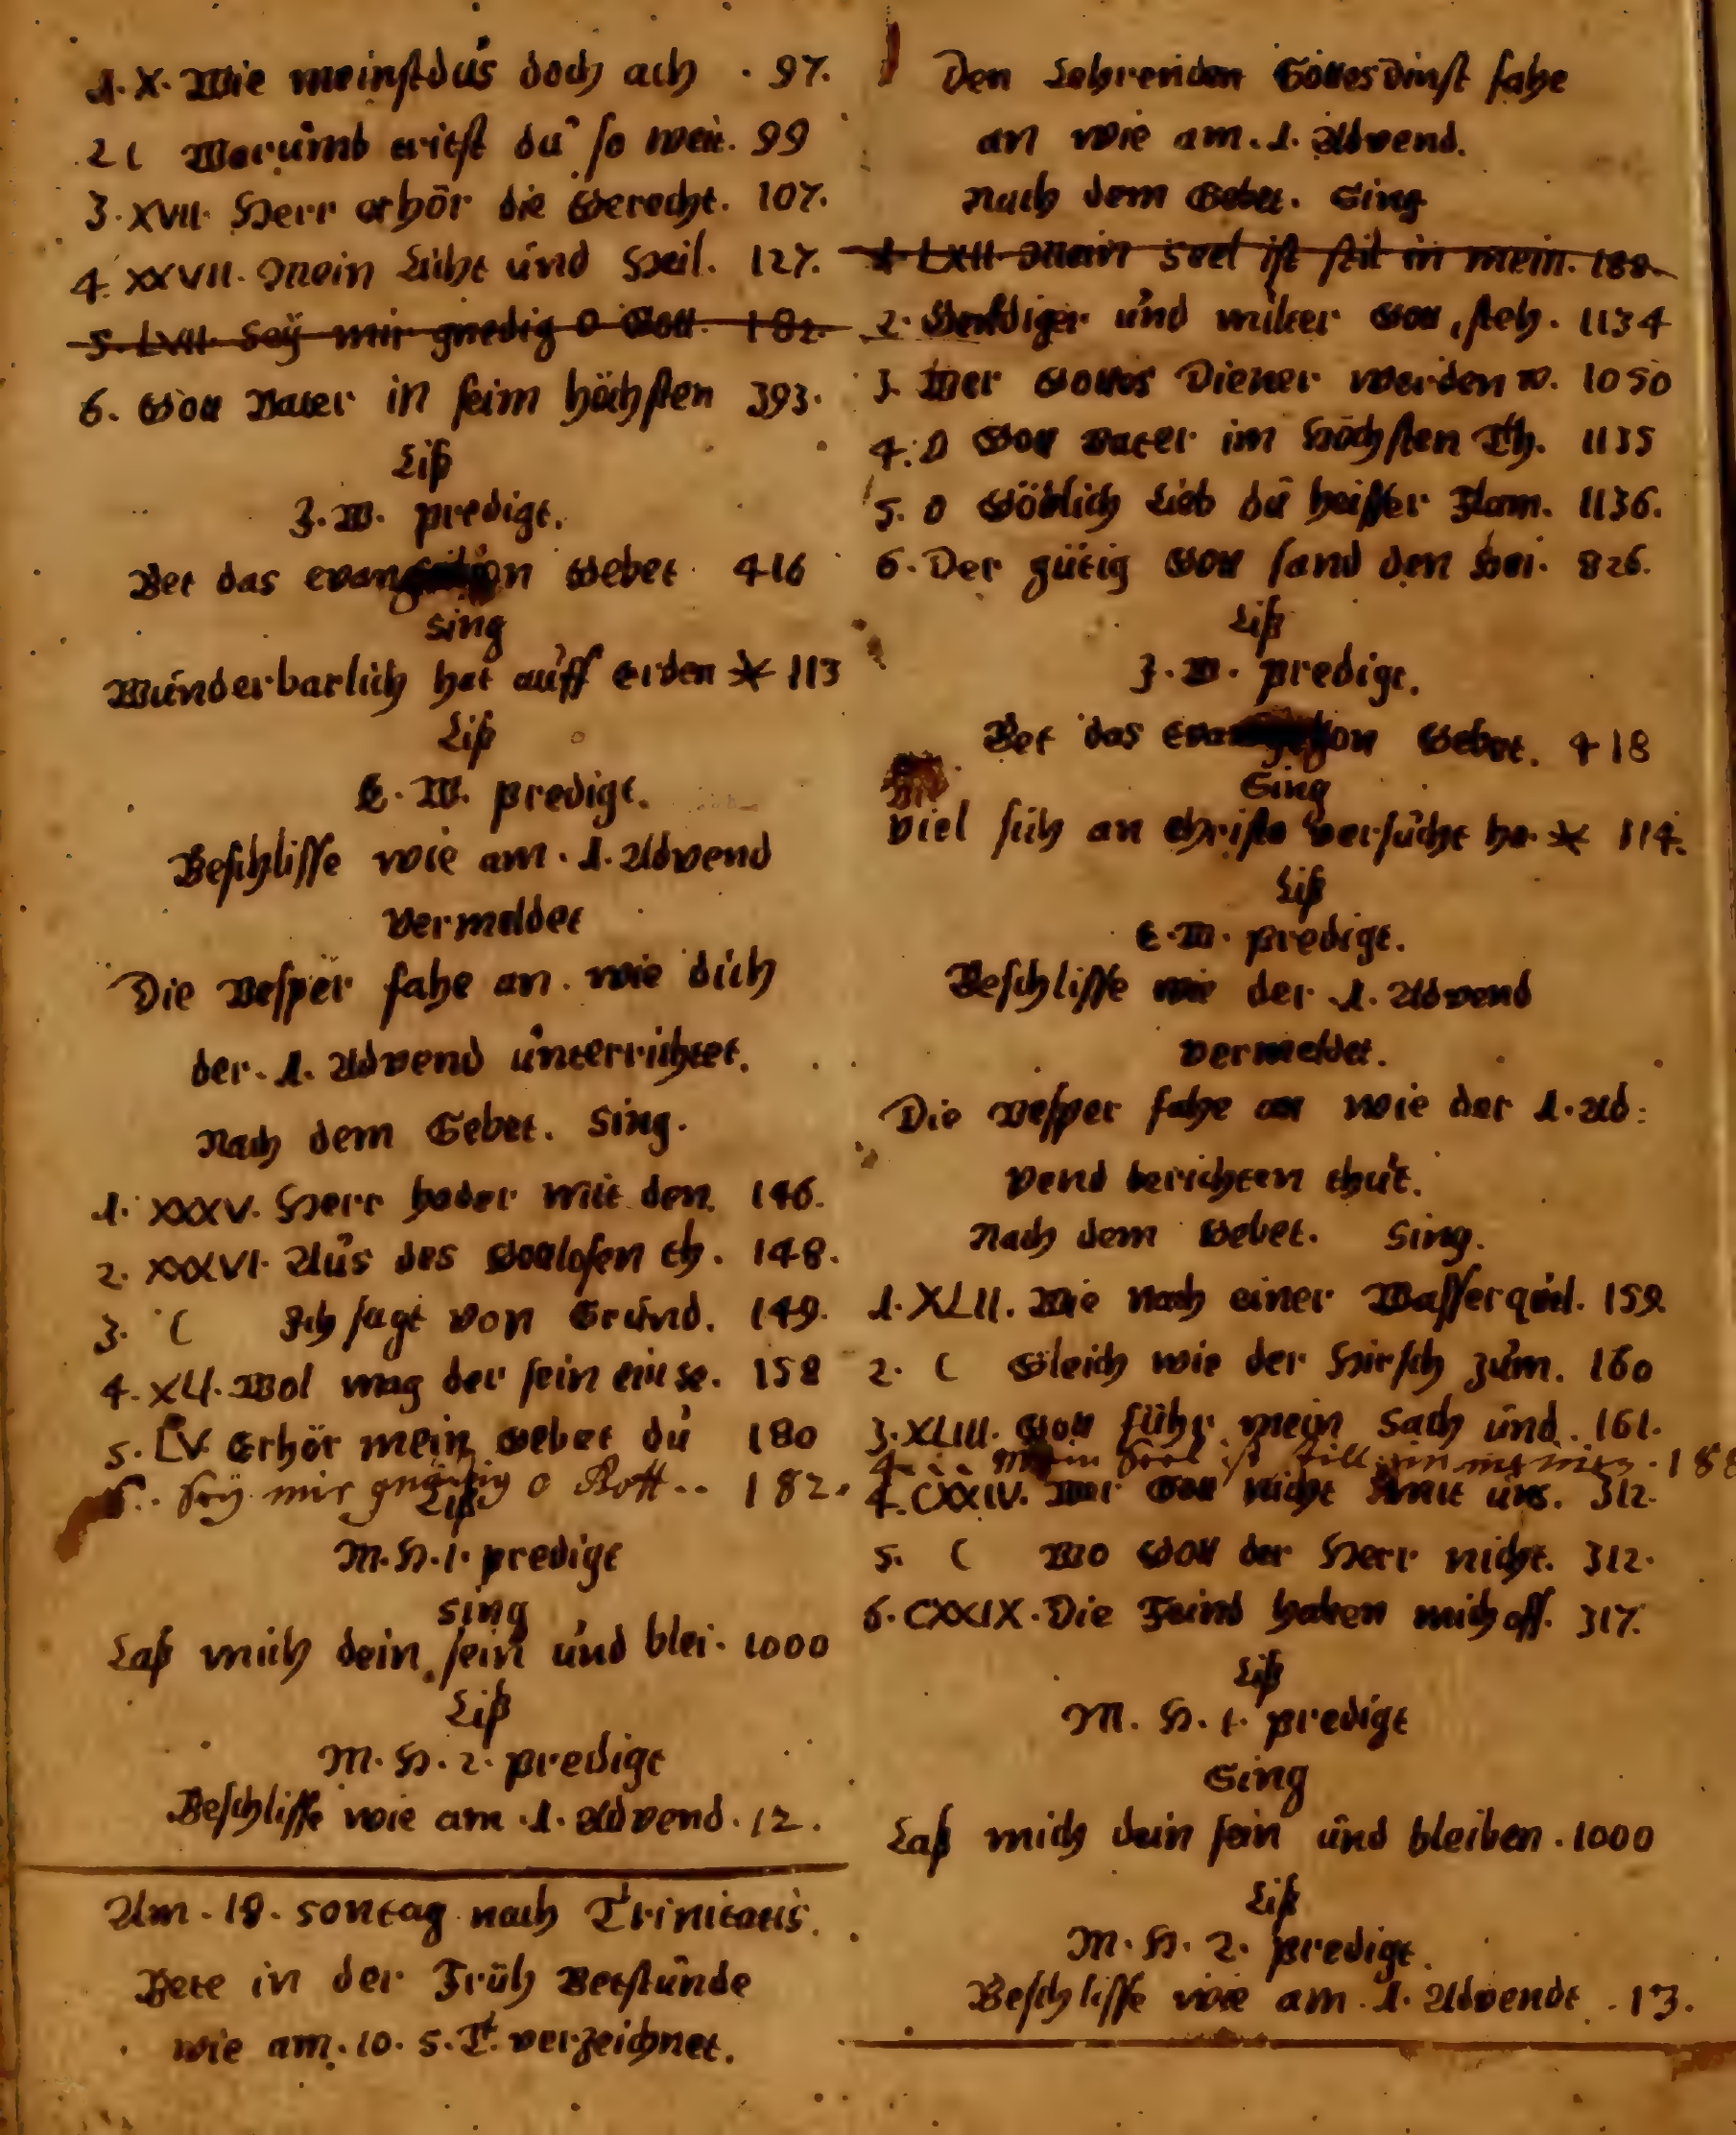 1. X. Wie meinstdus doch ach . 97.
2 ( Warumb tritst du so weit. 99
3. XVII. Herr erhör die Gerecht. 107.
4. XXVII. Mein Licht und Heil. 127.
5. LVII. Seÿ mir gnedig O Gott. 182.
6. Gott Vater in seim höchsten 393.
Liß
J. W. predigt.
Bet das evangelion Gebet 416
Sing
Wunderbarlich hat auff erden * 113
Liß
E. W. predigt.
Beschlisse wie am . 1. Advend
vermeldet
Die Vesper fahe an . wie dich
der . 1. Advend unterrichtet.
Nach dem Gebet. Sing.
1. XXXV. Herr hader mitt den. 146.
2. XXXVI. Aus des Gottlosen th. 148.
3. ( Ich sagt von Grund. 149.
4. XLI. Wol mag der sein ein se. 158
5. LV. Erhör mein Gebet du 180
6. . Seÿ mir gnädig o Gott . . 182.
Liß
M. H. 1. predigt
Sing
Laß mich dein sein und blei. 1000
Liß
M. H. 2. predigt
Beschlisse wie am . 1. Advend . 12.
Am . 18. Sontag nach Trinitatis.
Bete in der Früh Betstunde
wie am . 10. S. T. verzeichnet.
Den Lehrenden Gottesdinst fahe
an wie am . 1. Advend.
Nach dem Gebet. Sing
1. LXII. Mein Seel ist stil in mein. 188.
2. Geduldiger und milter Gott, steh. 1134
3. Wer Gottes Diener werden w. 1050
4. O Gott Vater im Höchsten Th. 1135
5. O Götlich Lieb du heisser Flam. 1136.
6. Der gütig Gott sand den Hei. 826.
Liß
J. W. predigt.
Bet das Evangelion Gebet. 418
Sing
Viel sich an Christo versucht ha. * 114.
Liß
E. W. predigt.
Beschlisse wie der . 1. Advend
vermeldet.
Die Vesper fahe an wie der 1. Ad:
vend berichten thut.
Nach dem Gebet. Sing.
1. XLII. Wie nach einer Wasserquel. 159.
2. ( Gleich wie der Hirsch zum. 160
3. XLIII. Gott führ mein Sach und . 161.
4. . . Mein Seel ist still in meinem . 188
4. CXXIV. Wer Gott nicht mit uns. 312.
5. ( Wo Gott der Herr nicht. 312.
6. CXXIX. Die Feind haben mich off. 317.
Liß
M. H. 1. predigt
Sing
Laß mich dein sein und bleiben . 1000
Liß
M. H. 2. predigt.
Beschlisse wie am . 1. Advendt . 13.